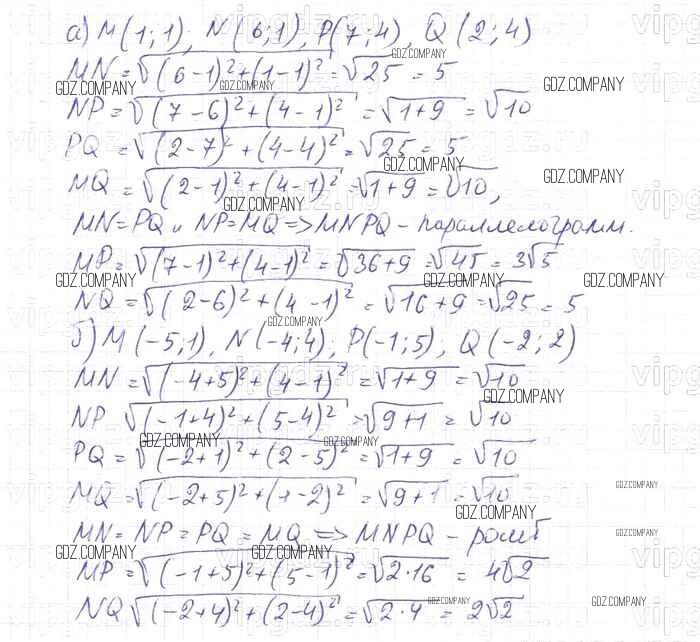 а) M(1;1), N(6;1), P(7;4), Q(2;4)
MN = √((6-1)²+(1-1)²) = √25 = 5
NP = √((7-6)²+(4-1)²) = √(1+9) = √10
PQ = √((2-7)²+(4-4)²) = √25 = 5
MQ = √((2-1)²+(4-1)²) = √(1+9) = √10,
MN=PQ и NP=MQ => MNPQ - параллелограмм.
MP = √((7-1)²+(4-1)²) = √(36+9) = √45 = 3√5
NQ = √((2-6)²+(4-1)²) = √(16+9) = √25 = 5
б) M(-5;1), N(-4;4), P(-1;5), Q(-2;2)
MN = √((-4+5)²+(4-1)²) = √(1+9) = √10
NP √((-1+4)²+(5-4)²) = √(9+1) = √10
PQ = √((-2+1)²+(2-5)²) = √(1+9) = √10
MQ = √((-2+5)²+(1-2)²) = √(9+1) = √10
MN = NP = PQ = MQ => MNPQ - ромб
MP = √((-1+5)²+(5-1)²) = √(2·16) = 4√2
NQ √((-2+4)²+(2-4)²) = √(2·4) = 2√2
GDZ.COMPANY
vipgdz.ru